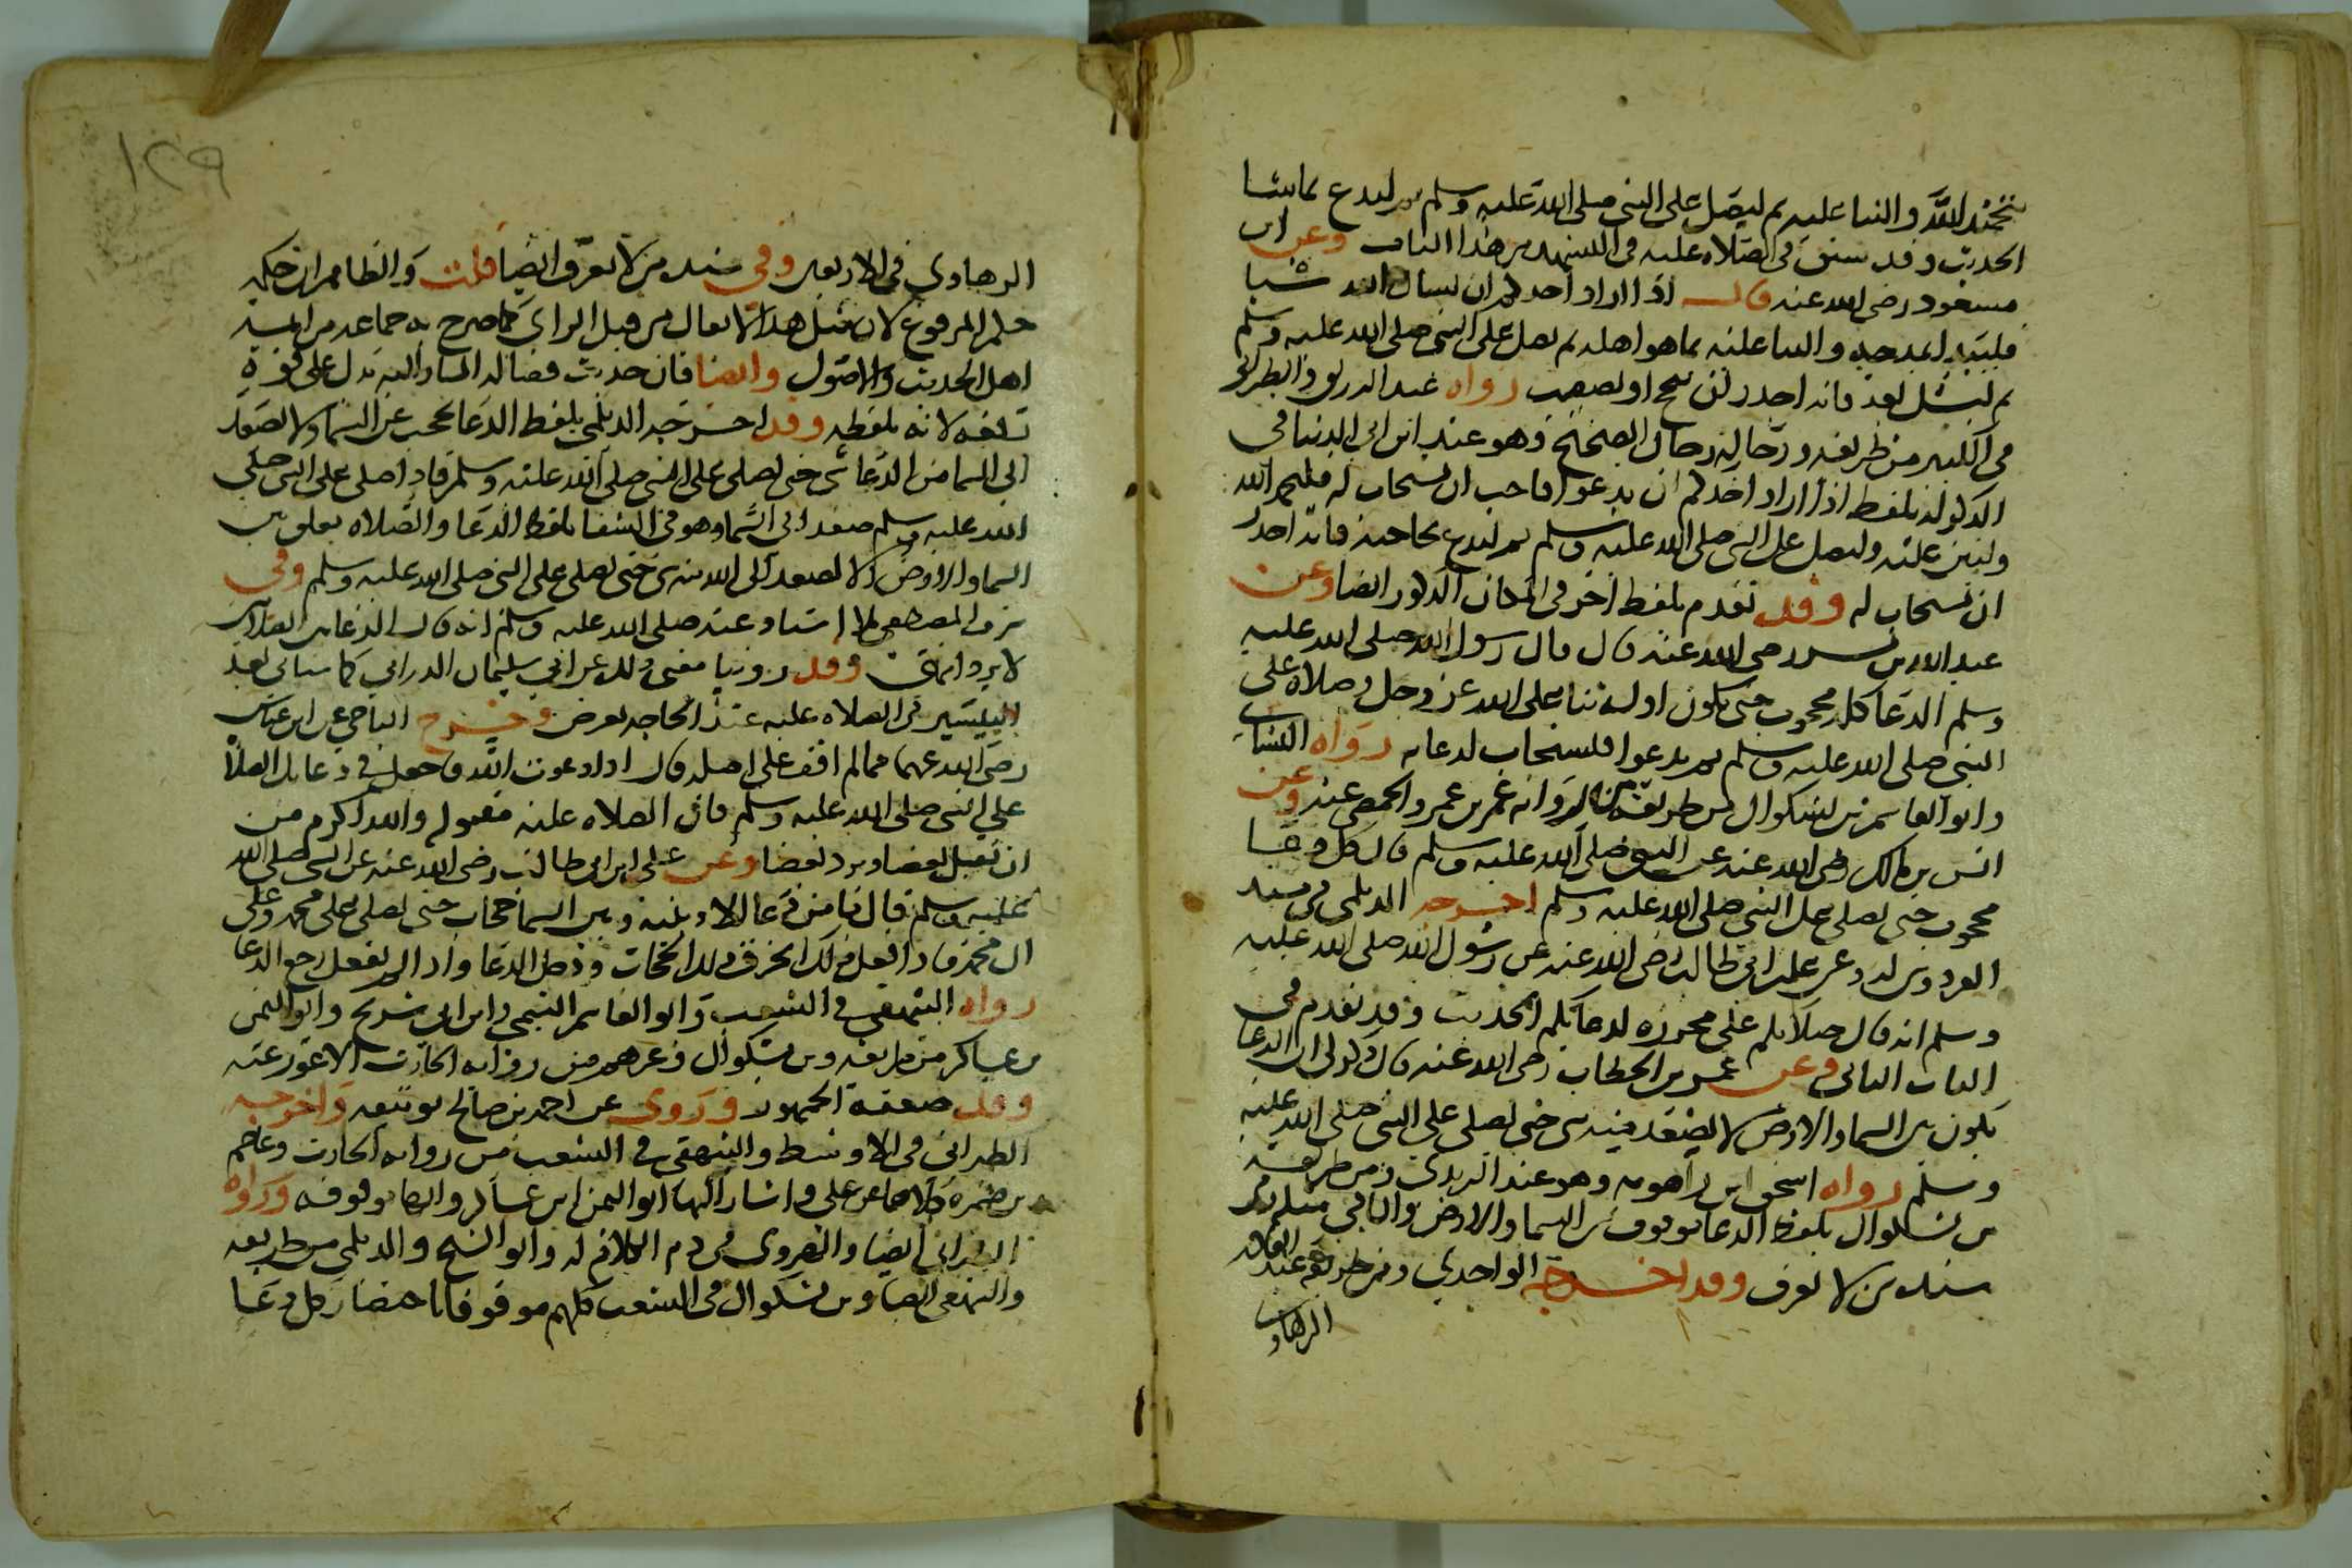 بتحميد الله والثنا عليه ثم ليصل على النبي صلى الله عليه وسلم ثم ليدع بما شا
الحديث وقد سبق في الصلاه عليه في التشهد من هذا الباب وعن ابن
مسعود رضي الله عنه قال اذا اراد احدكم ان يسال الله شيا
فليبدا بمدحه والثنا عليه بما هو اهله ثم يصل على النبي صلى الله عليه وسلم
ثم ليسل بعد فانه اجدر ان ينجح او يصيب رواه عبد الرزاق والطبراني
في الكبير من طريقه ورجاله رجال الصحيح وهو عند ابن ابي الدنيا في
الذكر له بلفظ اذا اراد احدكم ان يدعو فاحب ان يستجاب له فليحمد الله
وليثن عليه وليصل على النبي صلى الله عليه وسلم ثم ليدع بحاجته فانه اجدر
ان يستجاب له وقد تقدم بلفظ اخر في المكان المذكور ايضا وعن
عبد الله بن بسر رضي الله عنه قال قال رسول الله صلى الله عليه
وسلم الدعا كله محجوب حتى يكون اوله ثنا على الله عز وجل وصلاه على
النبي صلى الله عليه وسلم ثم يدعوا فيستجاب لدعايه رواه النسائي
وابو القاسم بن بشكوال من طريقه من رواية عمر بن عمرو الحمصي عنه وعن
انس بن مالك رضي الله عنه عن النبي صلى الله عليه وسلم قال كل دعا
محجوب حتى يصلى على النبي صلى الله عليه وسلم اخرجه الديلمي في مسند
الفردوس له وعن علي بن ابي طالب رضي الله عنه عن رسول الله صلى الله عليه
وسلم انه قال صلاتكم علي محرزه لدعائكم الحديث وقد تقدم في
الباب الثاني وعن عمر بن الخطاب رضي الله عنه قال ذكر لي ان الدعا
يكون بين السما والارض لا يصعد منه شي حتى يصلى على النبي صلى الله عليه
وسلم رواه اسحق ابن راهويه وهو عند الترمذي ومن طريقه
بن بشكوال بلفظ الدعا موقوف بين السما والارض والباقي مثله وفي
سنده من لا يعرف وقد اخرجه الواحدي ومن طريقه عبد القادر
الرهاوي
١٢٩
الرهاوي في الاربعين وفي سنده من لا يعرف ايضا قلت والظاهر ان حكمه
حكم المرفوع لان مثل هذا لا يقال من قبل الراى كما صرح به جماعه من ايمة
اهل الحديث والاصول وايضا فان حديث فضاله المشار اليه يدل على قوة
لانه بلفظه وقد اخرجه الديلمي بلفظ الدعا يحجب عن السما ولا يصعد
الى السما من الدعا شى حتى يصلى على النبي صلى الله عليه وسلم فاذا صلي على النبي صلى
الله عليه وسلم صعد الى السما وهو في الشفا بلفظ الدعا والصلاه معلق بين
السما والارض لا يصعد الى الله منه شى حتى يصلى على النبي صلى الله عليه وسلم وفي
شرف المصطفى بلا اسناد عنه صلى الله عليه وسلم انه قال الدعا بين الصلاتين
لا يرد وقد روينا معنى ذلك عن ابي سليمان الداراني كما سياتي بعد
في الصلاه عليه عند الحاجه تعرض وخرج الباجي عن ابن عباس
رضي الله عنهما مما لم اقف على اصله قال اذا دعوت الله فاجعل في دعايك الصلاة
على النبي صلى الله عليه وسلم فان الصلاه عليه مقبوله والله اكرم من
ان يقبل بعضا ويرد بعضا وعن علي ابن ابي طالب رضي الله عنه عن النبي صلى الله
عليه وسلم قال ما من دعا الا وبينه وبين السما حجاب حتى يصلى على محمد وعلى
ال محمد فاذا فعل ذلك انخرق ذلك الحجاب ودخل الدعا واذا لم يفعل رجع الدعا
رواه البيهقي في الشعب وابو القاسم التيمي وابن ابي شريح وابو اليمن
بن عساكر من طريقه وبن بشكوال وغيرهم من رواية الحارث الاعور عنه
وقد ضعفه الجمهور وروي عن احمد بن صالح توثيقه واخرجه
الطبراني في الاوسط والبيهقي في الشعب من رواية الحارث وعاصم
بن ضمره كلاهما عن علي واشار اليها ابو اليمن ابن عساكر وايضا وقوفه ورواه
ايضا والهروي في ذم الكلام له وابو الشيخ والديلمي من طريقه
والبيهقي ايضا وبن بشكوال في الشعب كلهم موقوفا باختصار كل دعا